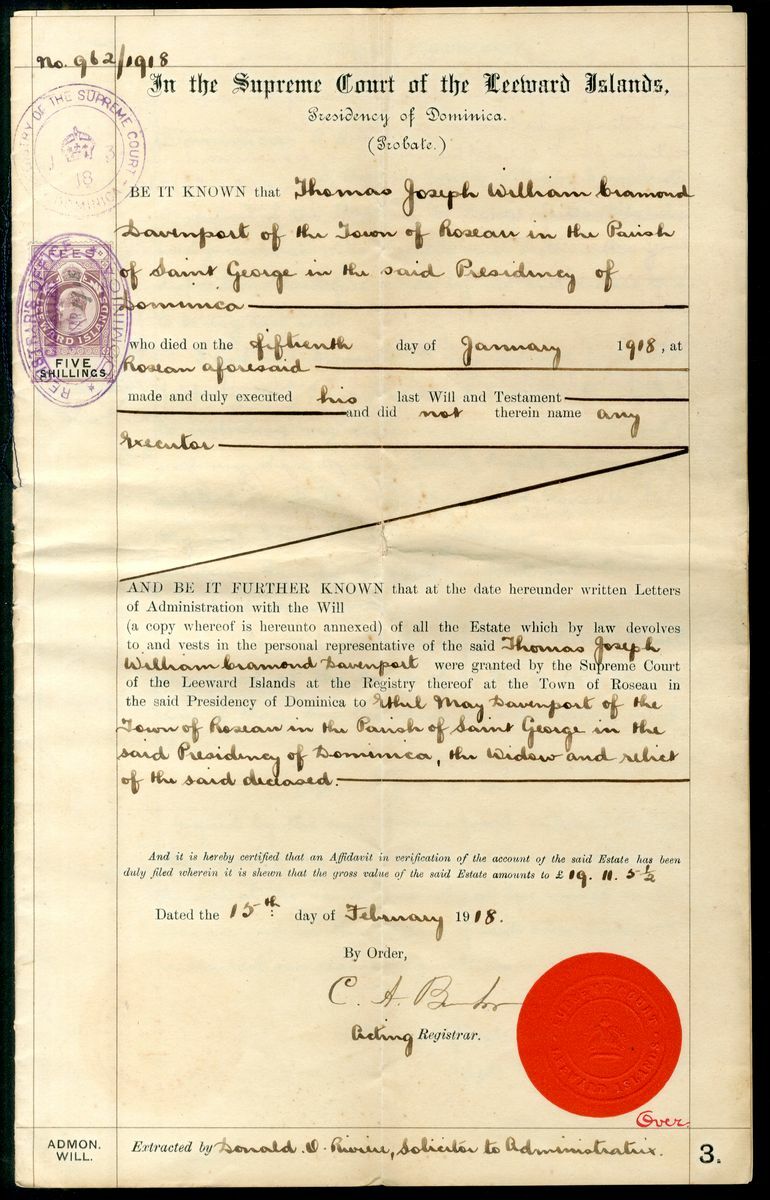 No. 962/1918
In the Supreme Court of the Leeward Islands,
Presidency of Dominica.
(Probate.)
REGISTRY OF THE SUPREME COURT
18
DOMINICA
BE IT KNOWN that Thomas Joseph William Cramond
Davenport of the Town of Roseau in the Parish
of Saint George in the said Presidency of
Dominica
REGISTRAR'S OFFICE
DOMINICA
LEEWARD ISLANDS
FIVE
SHILLINGS
who died on the fifteenth day of January 1918, at
Roseau aforesaid
made and duly executed his last Will and Testament
and did not therein name any
Executor
AND BE IT FURTHER KNOWN that at the date hereunder written Letters
of Administration with the Will
(a copy whereof is hereunto annexed) of all the Estate which by law devolves
to and vests in the personal representative of the said Thomas Joseph
William Cramond Davenport were granted by the Supreme Court
of the Leeward Islands at the Registry thereof at the Town of Roseau in
the said Presidency of Dominica to Ethel May Davenport of the
Town of Roseau in the Parish of Saint George in the
said Presidency of Dominica, the Widow and relict
of the said deceased.
And it is hereby certified that an Affidavit in verification of the account of the said Estate has been
duly filed wherein it is shewn that the gross value of the said Estate amounts to £ 19. 11. 5½
Dated the 15th day of February 1918.
By Order,
C. A.
Acting Registrar.
SUPREME COURT
LEEWARD ISLANDS
Over.
ADMON.
WILL.
Extracted by Donald. O. Riviere, Solicitor to Administratrix.
3.